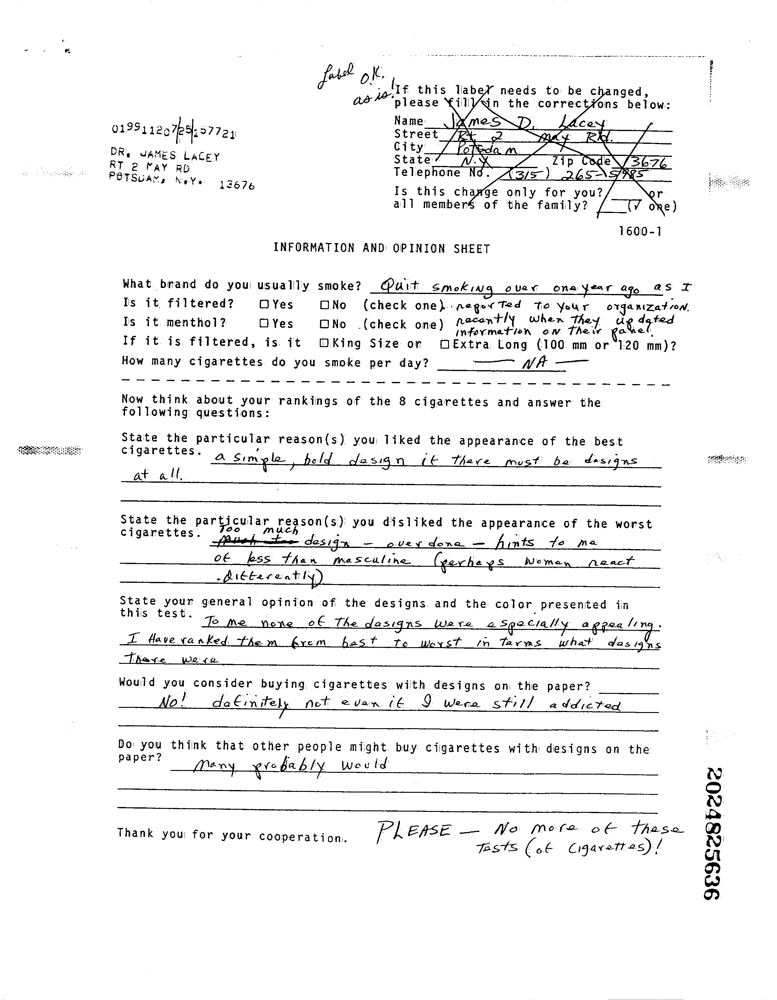 Label O.K.
as is!
If this label needs to be changed,
please fill in the corrections below:
Name James D. Lacey
Street Rt 2 May Rd.
City Potsdam
State N.Y Zip Code 13676
Telephone No. (315) 265-5985
Is this change only for you? or
all members of the family? (✓ one)
01991120725157721
DR. JAMES LACEY
RT 2 MAY RD
POTSDAM, N.Y. 13676
1600-1
INFORMATION AND OPINION SHEET
What brand do you usually smoke? Quit smoking over one year ago as I
Is it filtered? □ Yes □ No (check one) reported to your organization.
Is it menthol? □ Yes □ No (check one) recently when they updated
information on their panel.
If it is filtered, is it □ King Size or □ Extra Long (100 mm or 120 mm)?
How many cigarettes do you smoke per day? — NA —
Now think about your rankings of the 8 cigarettes and answer the
following questions:
State the particular reason(s) you liked the appearance of the best
cigarettes. a simple, bold design if there must be designs
at all.
State the particular reason(s) you disliked the appearance of the worst
cigarettes. Too much design — overdone — hints to me
of less than masculine (perhaps women react
differently)
State your general opinion of the designs and the color presented in
this test. To me none of the designs were especially appealing.
I Have ranked them from best to worst in terms what designs
there were
Would you consider buying cigarettes with designs on the paper?
No! definitely not even if I were still addicted
Do you think that other people might buy cigarettes with designs on the
paper? Many probably would
Thank you for your cooperation. PLEASE — No more of these
Tests (of Cigarettes)!
2024825636